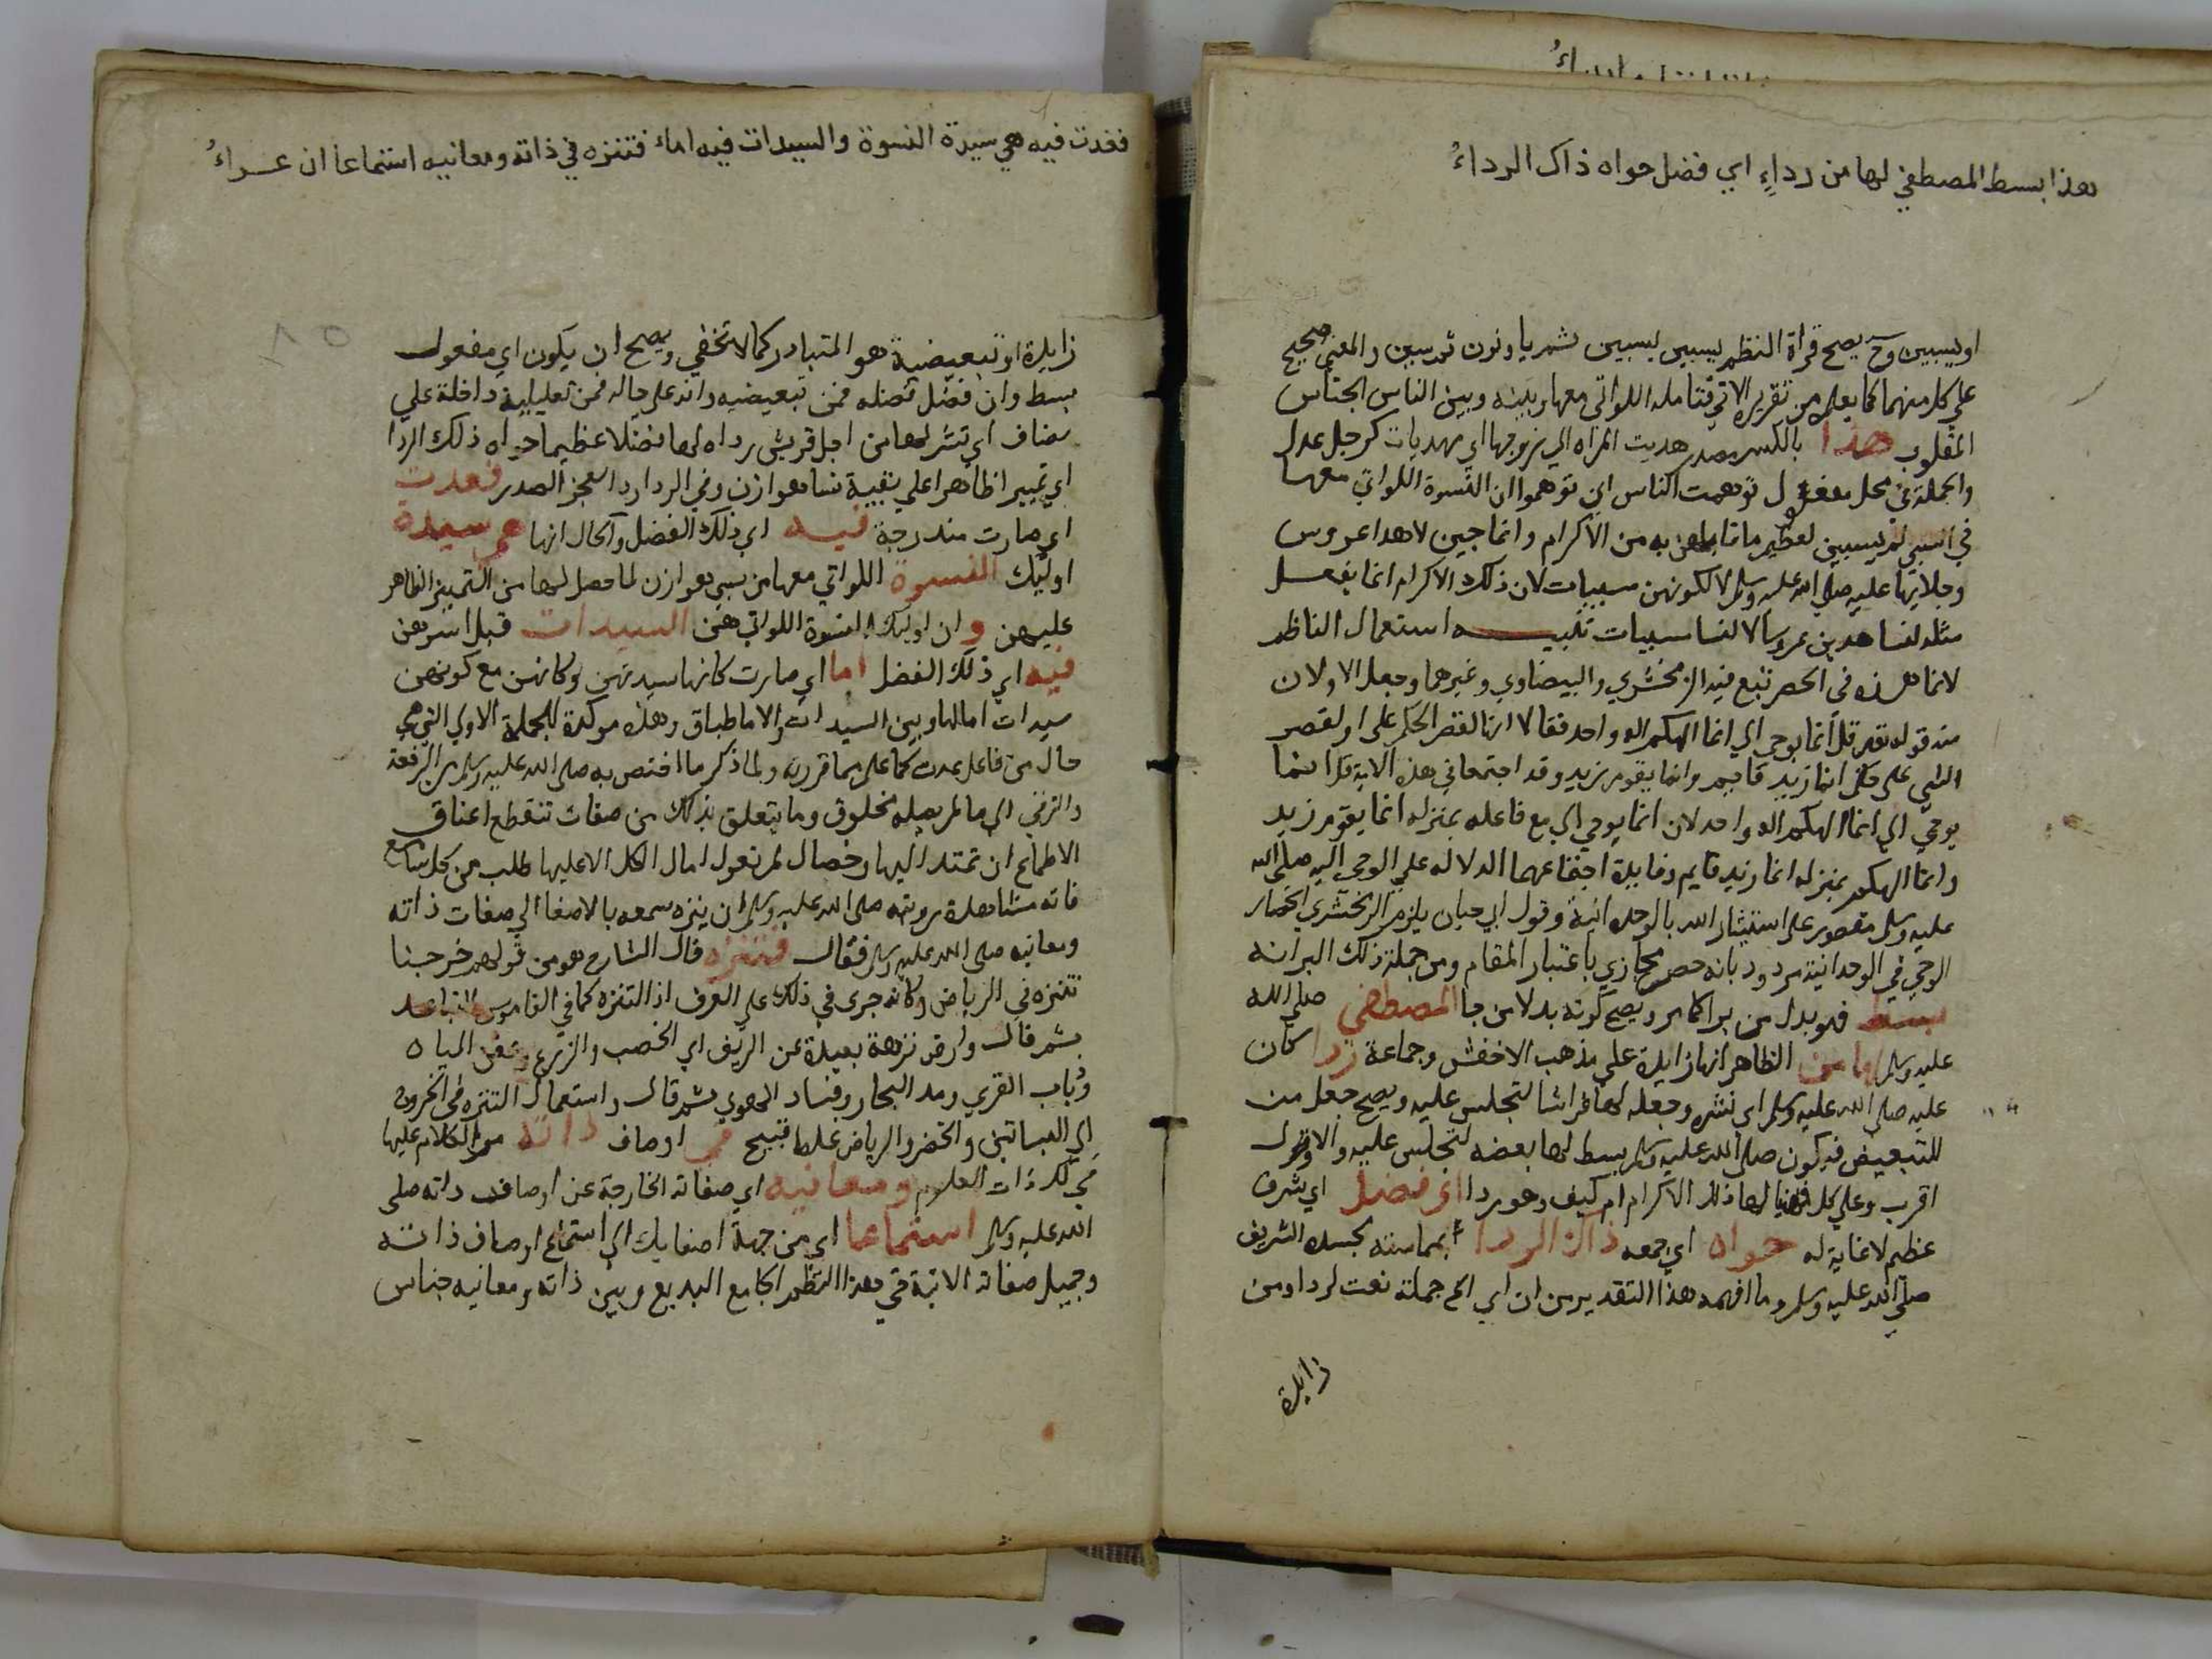 هذا بسط المصطفي لها من رداءٍ اي فضل حواه ذاك الرداءُ
او يسبين وح يصح قراة النظم يسبين ليسبين بشم يا ونون ثم سين والمعني صحيح
علي كل منهما كما يعلم من تقريره الاتي فتامله اللواتي معها وبينه وبين الناس الجناس
المقلوب هدا بالكسر مصدر هديت المراه الي زوجها اي مهديات كرجل عدل
والجملة في محل مفعول توهمت الناس اي توهموا ان النسوة اللواتي معها
في السبي لم يسبين لعظيم ما قابلهن به من الاكرام وانما جين لاهدا عروس
وجلايها عليه صلي الله عليه وسلم لا لكونهن مسبيات لان ذلك الاكرام انما يفعل
مثله لنسا هدين عروسا لا لنسا مسبيات تنبيه استعمال الناظم
لانما هذه في الحصر تبع فيه الزمخشري والبيضاوي وغيرهما وجعل الاولان
منه قوله تعم قل انما يوحي الي انما الهكم اله واحد فقالا انما لقصر الحكم علي او لقصر
الشي علي حكم انما زيد قايم وانما يقوم زيد وقد اجتمعا في هذه الاية قل انما
يوحي الي انما الهكم اله واحد لان انما يوحي الي مع فاعله بمنزله انما يقوم زيد
وانما الهكم بمنزله انما زيد قايم وفايدة اجتماعهما الدلاله علي الوحي اليه صلي الله
عليه وسلم مقصور علي استيثار الله بالوحدانية وقول ابي حيان يلزم الزمخشري انحصار
الوحي في الوحدانية مردود بانه حصر مجازي باعتبار المقام ومن جملة ذلك البر انه
بسط فهو بدل من بر اكما مر ويصح كونه بدلا من جا المصطفي صلي الله
عليه وسلم لها من الظاهر انها زايدة علي مذهب الاخفش وجماعة ردا كان
عليه صلي الله عليه وسلم اي نشره وجعله لها فراشا لتجلس عليه ويصح جعل من
للتبعيض فيكون صلي الله عليه وسلم بسط لها بعضه لتجلس عليه والاول
اقرب وعلي كل لها ذلك الاكرام ام كيف وهو ردا اي فضل اي شرف
عظيم لا غاية له حواه اي جمعه ذاك الردا بمماسته لجسده الشريف
صلي الله عليه وسلم وما افهمه هذا التقدير من ان اي الخ جملة نعت لردا ومن
زايدة
فغدت فيه هي سيدة النسوة والسيدات فيه اماء فتنزه في ذاته ومعانيه استماعا ان عز اءُ
زايدة او تبعيضية هو المتبادر كما لا تخفي ويصح ان يكون اي مفعول
بسط وان فضل فضله فمن تبعيضيه وانه علي حاله فمن تعليلية داخلة علي
مضاف اي نشر لها من اجل قريش رداه لها فضلا عظيما حواه ذلك الردا
اي تمييزا ظاهرا علي بقية نسا هوازن وفي الردا رد العجز الصدر فغدت
اي صارت مندرجة فيه اي ذلك الفضل والحال انها هي سيدة
اوليك النسوة اللواتي معها من سبي هوازن لما حصل لها من التمييز الظاهر
عليهن و ان اوليك النسوة اللواتي هن السيدات قبل اسرهن
فيه اي ذلك الفضل اما اي صارت كانها سيدتهن وكانهن مع كونهن
سيدات اما لها وبين السيدات والاما طباق وهذه موكدة للجملة الاولي التي هي
حال من فاعل غدت كما علم مما قررته ولما ذكر ما اختص به صلي الله عليه وسلم من الرفعة
والترقي الي ما لم يصله مخلوق وما يتعلق بذلك من صفات تنقطع اعناق
الاطماع ان تمتد اليها وخصال لم تعول امال الكل الا عليها طلب من كل سامع
فاته مشاهدة رويته صلي الله عليه وسلم ان ينزه سمعه بالاصغا الي صفات ذاته
ومعانيه صلي الله عليه وسلم فقال فتنزه قال الشارح هو من قولهم خرجنا
نتنزه في الرياض وكانه جري في ذلك علي العرف اذ التنزه كما في القاموس التباعد
ثم قال وارض نزهة بعيدة عن الريف اي الخصب والزرع وغمق المياه
وذباب القري ومد البحار وفساد الهوي ثم قال واستعمال التنزه في الخروج
الي البساتين والخضر والرياض غلط قبيح في اوصاف ذاته مر الكلام عليها
في لك ذات العلوم ومعانيه اي صفاته الخارجة عن اوصاف ذاته صلي
الله عليه وسلم استماعا اي من جهة اصغايك الي استماع اوصاف ذاته
وجميل صفاته الاتية في هذا النظم الجامع البديع وبين ذاته ومعانيه جناس